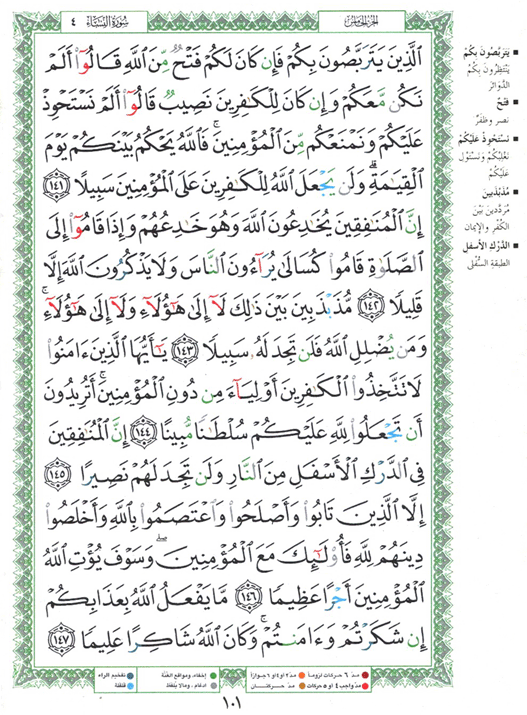 الجزء الخامس
سُورَةُ النِّسَاءِ ٤
ٱلَّذِينَ يَتَرَبَّصُونَ بِكُمْ فَإِن كَانَ لَكُمْ فَتْحٌ مِّنَ ٱللَّهِ قَالُوٓا۟ أَلَمْ
نَكُن مَّعَكُمْ وَإِن كَانَ لِلْكَٰفِرِينَ نَصِيبٌ قَالُوٓا۟ أَلَمْ نَسْتَحْوِذْ
عَلَيْكُمْ وَنَمْنَعْكُم مِّنَ ٱلْمُؤْمِنِينَ ۚ فَٱللَّهُ يَحْكُمُ بَيْنَكُمْ يَوْمَ
ٱلْقِيَٰمَةِ ۗ وَلَن يَجْعَلَ ٱللَّهُ لِلْكَٰفِرِينَ عَلَى ٱلْمُؤْمِنِينَ سَبِيلًا ١٤١
إِنَّ ٱلْمُنَٰفِقِينَ يُخَٰدِعُونَ ٱللَّهَ وَهُوَ خَٰدِعُهُمْ وَإِذَا قَامُوٓا۟ إِلَى
ٱلصَّلَوٰةِ قَامُوا۟ كُسَالَىٰ يُرَآءُونَ ٱلنَّاسَ وَلَا يَذْكُرُونَ ٱللَّهَ إِلَّا
قَلِيلًا ١٤٢ مُّذَبْذَبِينَ بَيْنَ ذَٰلِكَ لَآ إِلَىٰ هَٰٓؤُلَآءِ وَلَآ إِلَىٰ هَٰٓؤُلَآءِ ۚ
وَمَن يُضْلِلِ ٱللَّهُ فَلَن تَجِدَ لَهُۥ سَبِيلًا ١٤٣ يَٰٓأَيُّهَا ٱلَّذِينَ ءَامَنُوا۟
لَا تَتَّخِذُوا۟ ٱلْكَٰفِرِينَ أَوْلِيَآءَ مِن دُونِ ٱلْمُؤْمِنِينَ ۚ أَتُرِيدُونَ
أَن تَجْعَلُوا۟ لِلَّهِ عَلَيْكُمْ سُلْطَٰنًا مُّبِينًا ١٤٤ إِنَّ ٱلْمُنَٰفِقِينَ
فِى ٱلدَّرْكِ ٱلْأَسْفَلِ مِنَ ٱلنَّارِ وَلَن تَجِدَ لَهُمْ نَصِيرًا ١٤٥
إِلَّا ٱلَّذِينَ تَابُوا۟ وَأَصْلَحُوا۟ وَٱعْتَصَمُوا۟ بِٱللَّهِ وَأَخْلَصُوا۟
دِينَهُمْ لِلَّهِ فَأُو۟لَٰٓئِكَ مَعَ ٱلْمُؤْمِنِينَ ۖ وَسَوْفَ يُؤْتِ ٱللَّهُ
ٱلْمُؤْمِنِينَ أَجْرًا عَظِيمًا ١٤٦ مَّا يَفْعَلُ ٱللَّهُ بِعَذَابِكُمْ
إِن شَكَرْتُمْ وَءَامَنتُمْ ۚ وَكَانَ ٱللَّهُ شَاكِرًا عَلِيمًا ١٤٧
■ يَتَرَبَّصُونَ بِكُمْ
يَنْتَظِرُونَ بِكُمُ
الدَّوَائِرَ
■ فَتْحٌ
نصر وظَفَرٌ
■ نَسْتَحْوِذْ عَلَيْكُمْ
نَغْلِبْكُمْ وَنَسْتَوْلِ
عَلَيْكُمْ
■ مُذَبْذَبِينَ
مُرَدَّدِينَ بَيْنَ
الكُفْرِ والإيمانِ
■ الدَّرْكِ الأَسْفَلِ
الطبقةِ السُّفْلَى
مدّ ٦ حركات لزوماً
مدّ ٢ أو ٤ أو ٦ جوازاً
إخفاء، ومواقع الغُنَّة
تفخيم الراء
مدّ واجب ٤ أو ٥ حركات
مدّ حركتان
ادغام، وما لا يُلفظ
قلقلة
١٠١